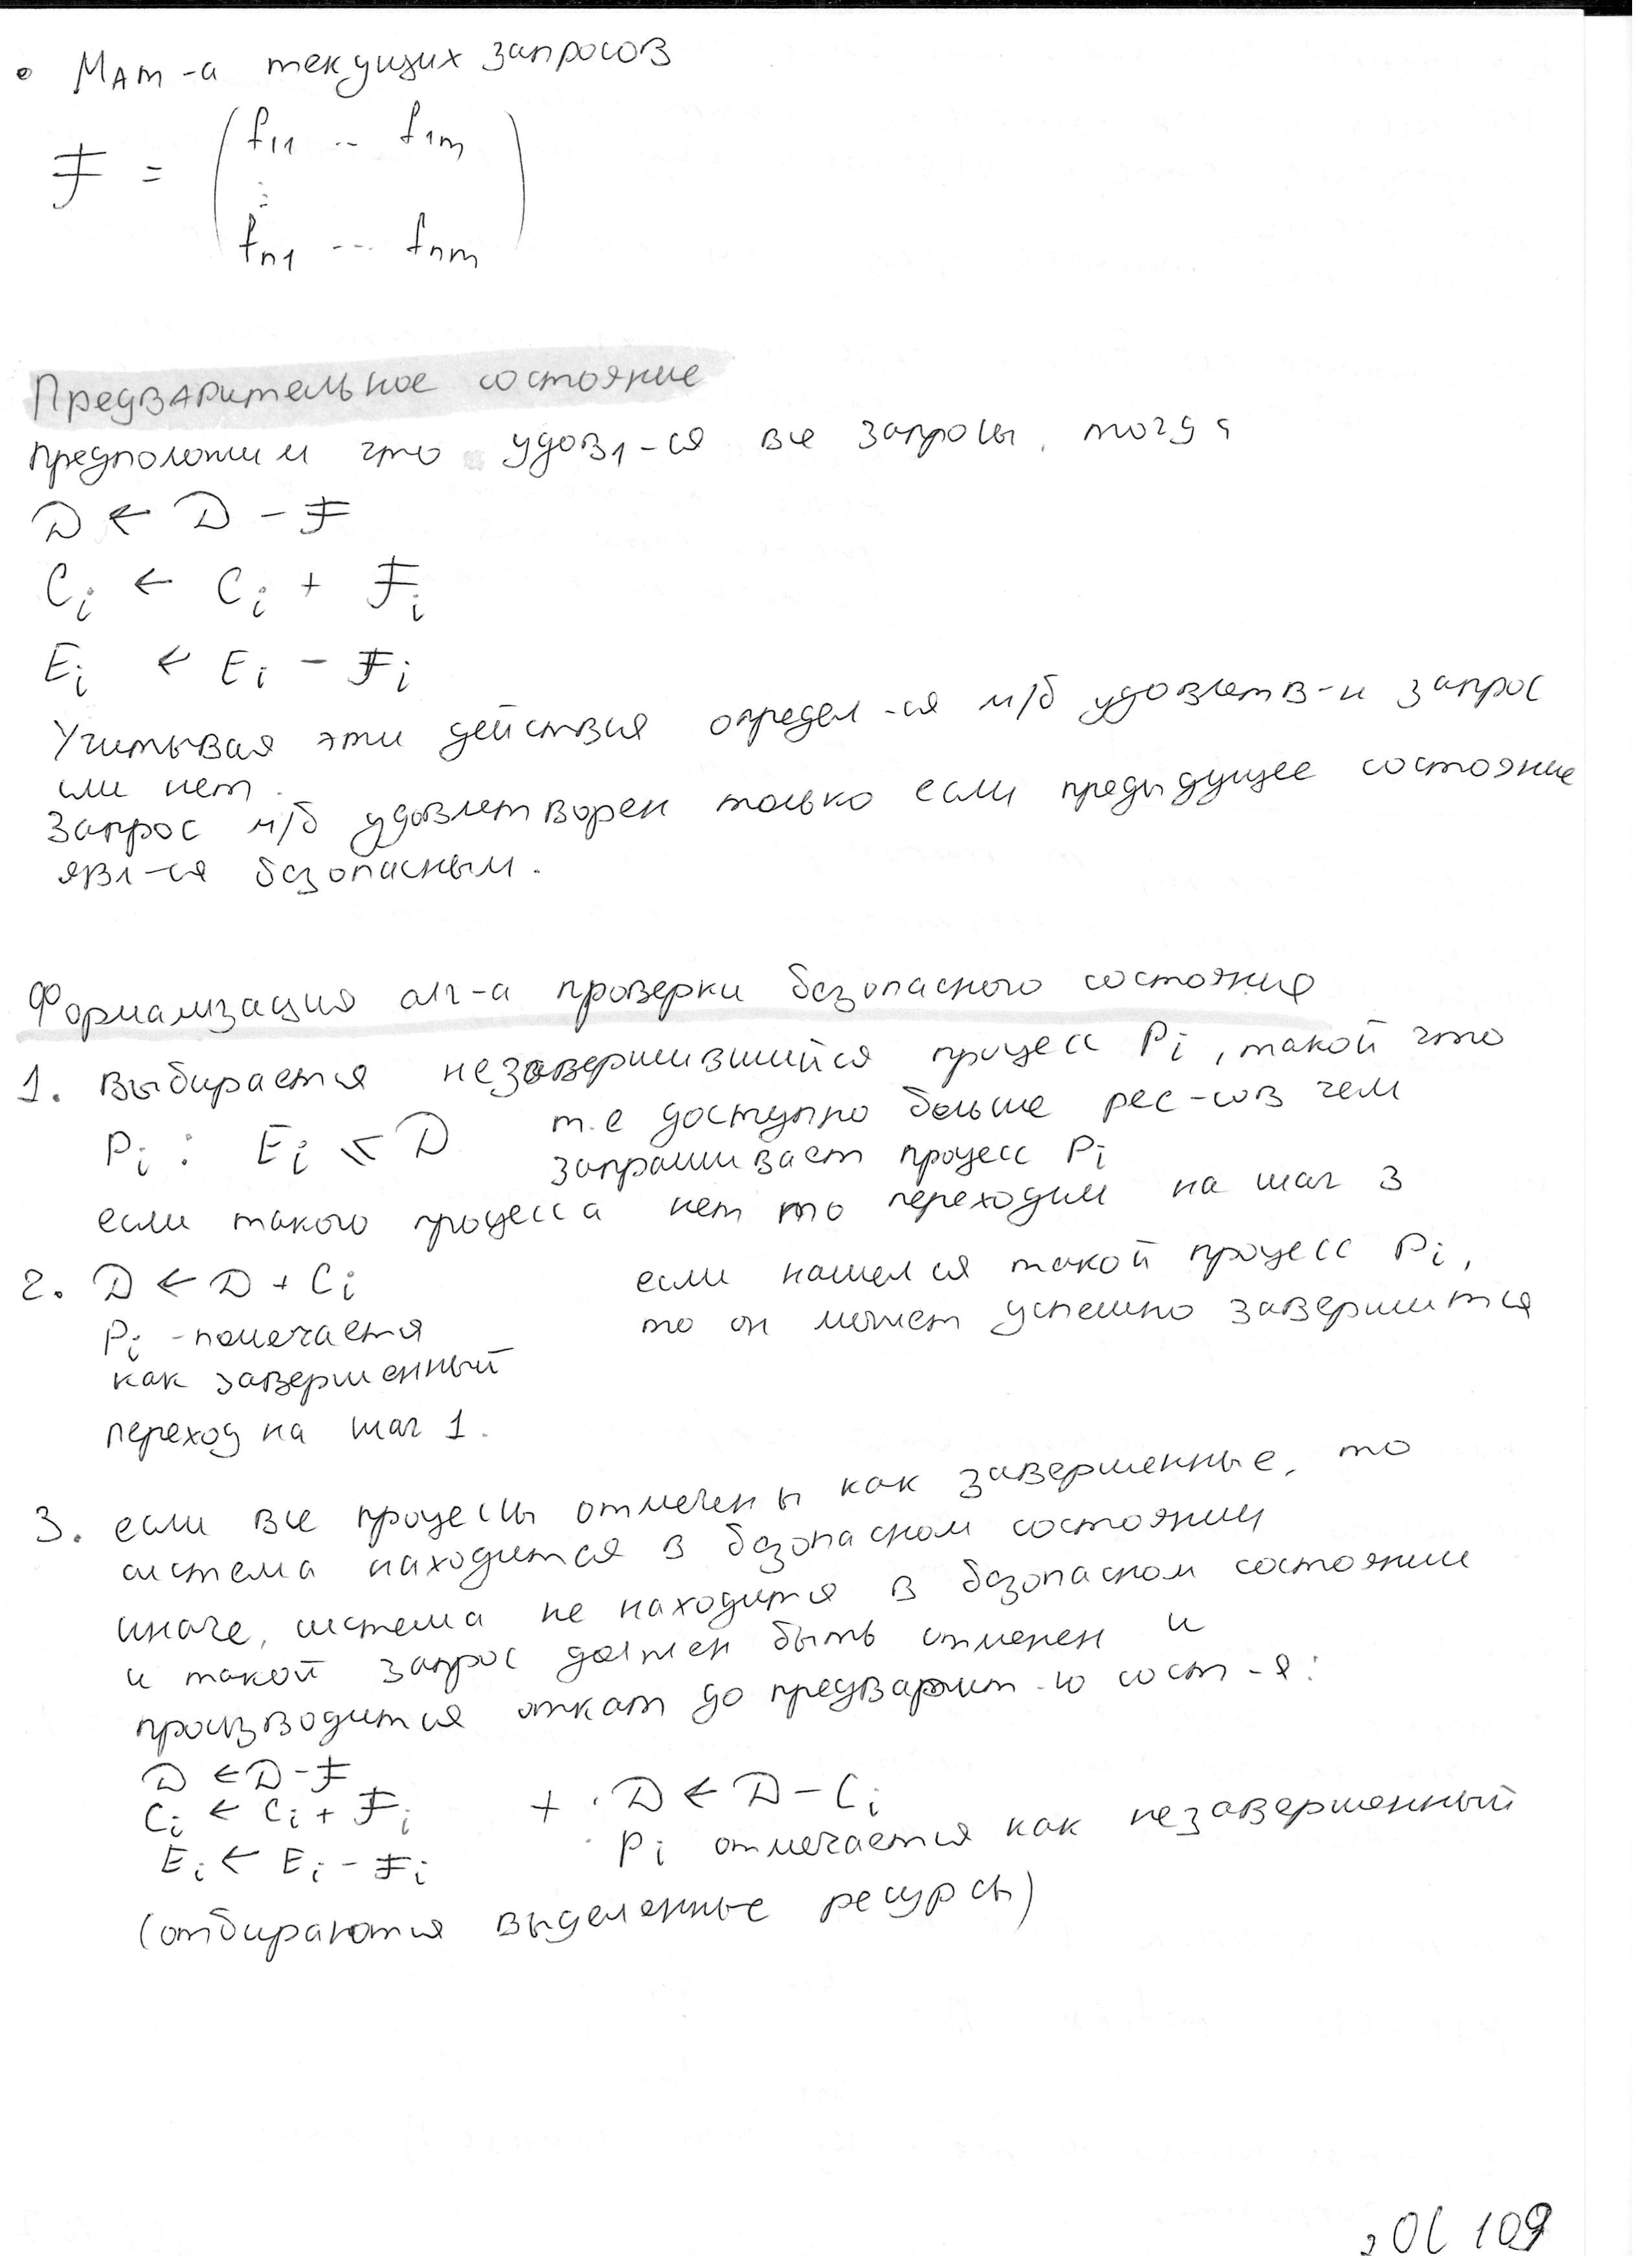 • Мат-а текущих запросов
F = ( f11 .. f1m
⋮
fn1 ... fnm )
Предварительное состояние
предположим что удовл-ся все запросы, тогда
D ← D - F
Ci ← Ci + Fi
Ei ← Ei - Fi
Учитывая эти действия определ-ся м/б удовлетв-н запрос
или нет.
Запрос м/б удовлетворен только если предыдущее состояние
явл-ся безопасным.
Формализация алг-а проверки безопасного состояния
1. выбирается незавершившийся процесс Pi, такой что
Pi : Ei ≤ D т.е доступно больше рес-сов чем
запрашивает процесс Pi
если такого процесса нет то переходим на шаг 3
2. D ← D + Ci если нашелся такой процесс Pi,
Pi - помечается то он может успешно завершится
как завершенный
переход на шаг 1.
3. если все процессы отмечены как завершенные, то
система находится в безопасном состоянии
иначе, система не находится в безопасном состоянии
и такой запрос должен быть отменен и
производится откат до предварит-го сост-я:
D ← D - F
Ci ← Ci + Fi + · D ← D - Ci
Ei ← Ei - Fi · Pi отмечается как незавершенный
(отбираются выделенные ресурсы)
ОС 109